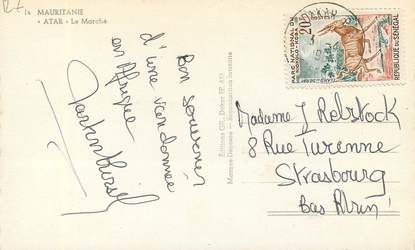 14 MAURITANIE
« ATAR » - Le Marché
Bon souvenir
d'une randonnée
en Afrique
Editions GIL, Dakar BP
Marque Déposée - Reproduction interdite
20F
POSTES
PARC NATIONAL DU
NIOKOLO-KOBA
REPUBLIQUE DU SENEGAL
Madame J Rebstock
8 Rue Turenne
Strasbourg
Bas Rhin